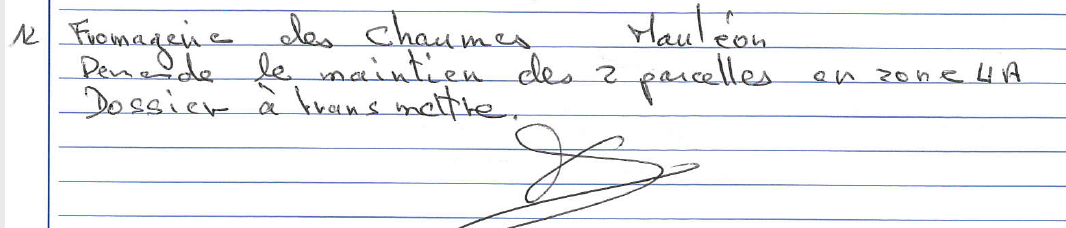 12 Fromagerie des Chaumes Mauléon
Demande le maintien des 2 parcelles en zone UA
Dossier à transmettre.